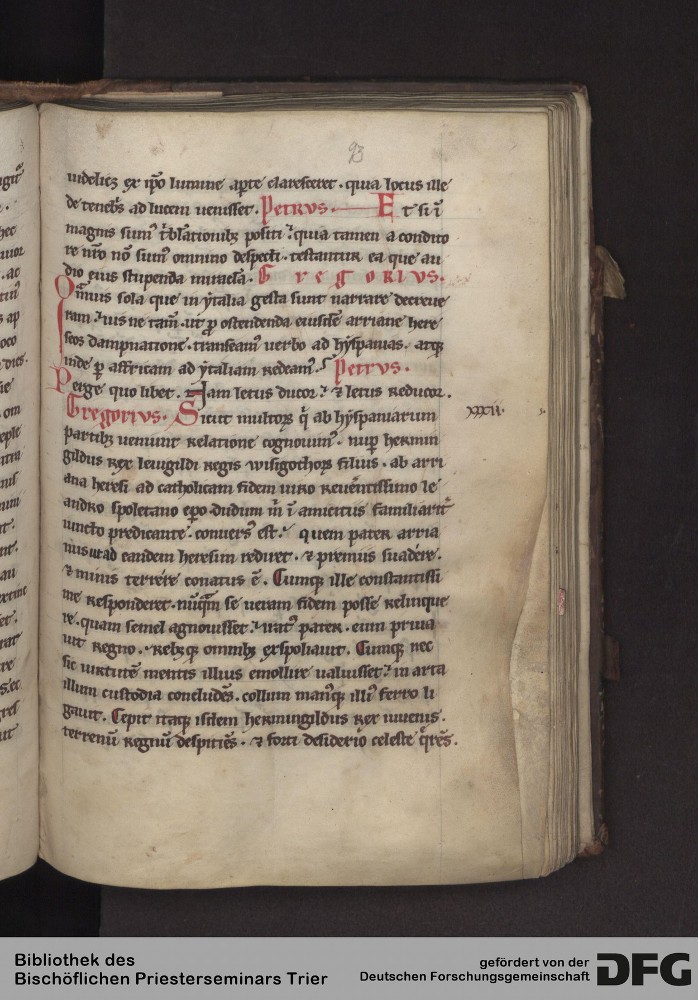 93
uidelicȝ ex ip̄o lumine ap̲te claresceret · quia locus ille
de teneb̄s ad lucem uenisset. Petrvs. Et si ī
magnis sum᷒ t̄blationib᷒ positi ⁊ quia tamen a condito
re nr̄o nō sum᷒ omnino despecti · testantur ea que au
dio eius stupenda miracła. Gregorivs.
Omīus sola que in ẏtalia gesta sunt narrare decreue
ram · uis ne tam̄ · ut p̲ ostendenda eiusdē arriane here
seos dampnatione · transeam᷒ uerbo ad hẏspanias · atq̲
inde p̲ affricam ad ẏtaliam redeam᷒. Petrvs.
Perge quo libet · Nam letus ducor · ⁊ letus reducor.
Gregorivs. Sicut multoꝝ q̄ ab hẏspaniarum
xxxii.
partib᷒ ueniunt relatione cognouim᷒ · nup̲ hermin
gildus rex leuigildi regis wisigothoꝝ filius · ab arri
ana heresi ad catholicam fidem uiro reuēntissimo le
andro spoletano ep̄o · dudum m̄ ī amicitiis familiarit̄
iuncto predicante · conuers᷒ est. quem pater arria
nus ut ad eandem heresim rediret · ⁊ premiis suadere ·
⁊ minis terrere conatus ē. Cumq̲ ille constantissi
me responderet · nūq̄m se ueram fidem posse relinque
re · quam semel agnouisset · irat᷒ pater · eum priua
uit regno · rebȝq̲ omnib᷒ exspoliauit. Cumq̲ nec
sic uirtutē mentis illius emollire ualuisset · in arta
illum custodia concludēs · collum man᷒q̲ illi᷒ ferro li
gauit. Cepit itaq̲ isdem hermingildus rex iuuenis ·
terrenū regnū despiciēs · ⁊ forti desiderio celeste q̄rēs.
Bibliothek des
Bischöflichen Priesterseminars Trier
gefördert von der
Deutschen Forschungsgemeinschaft
DFG